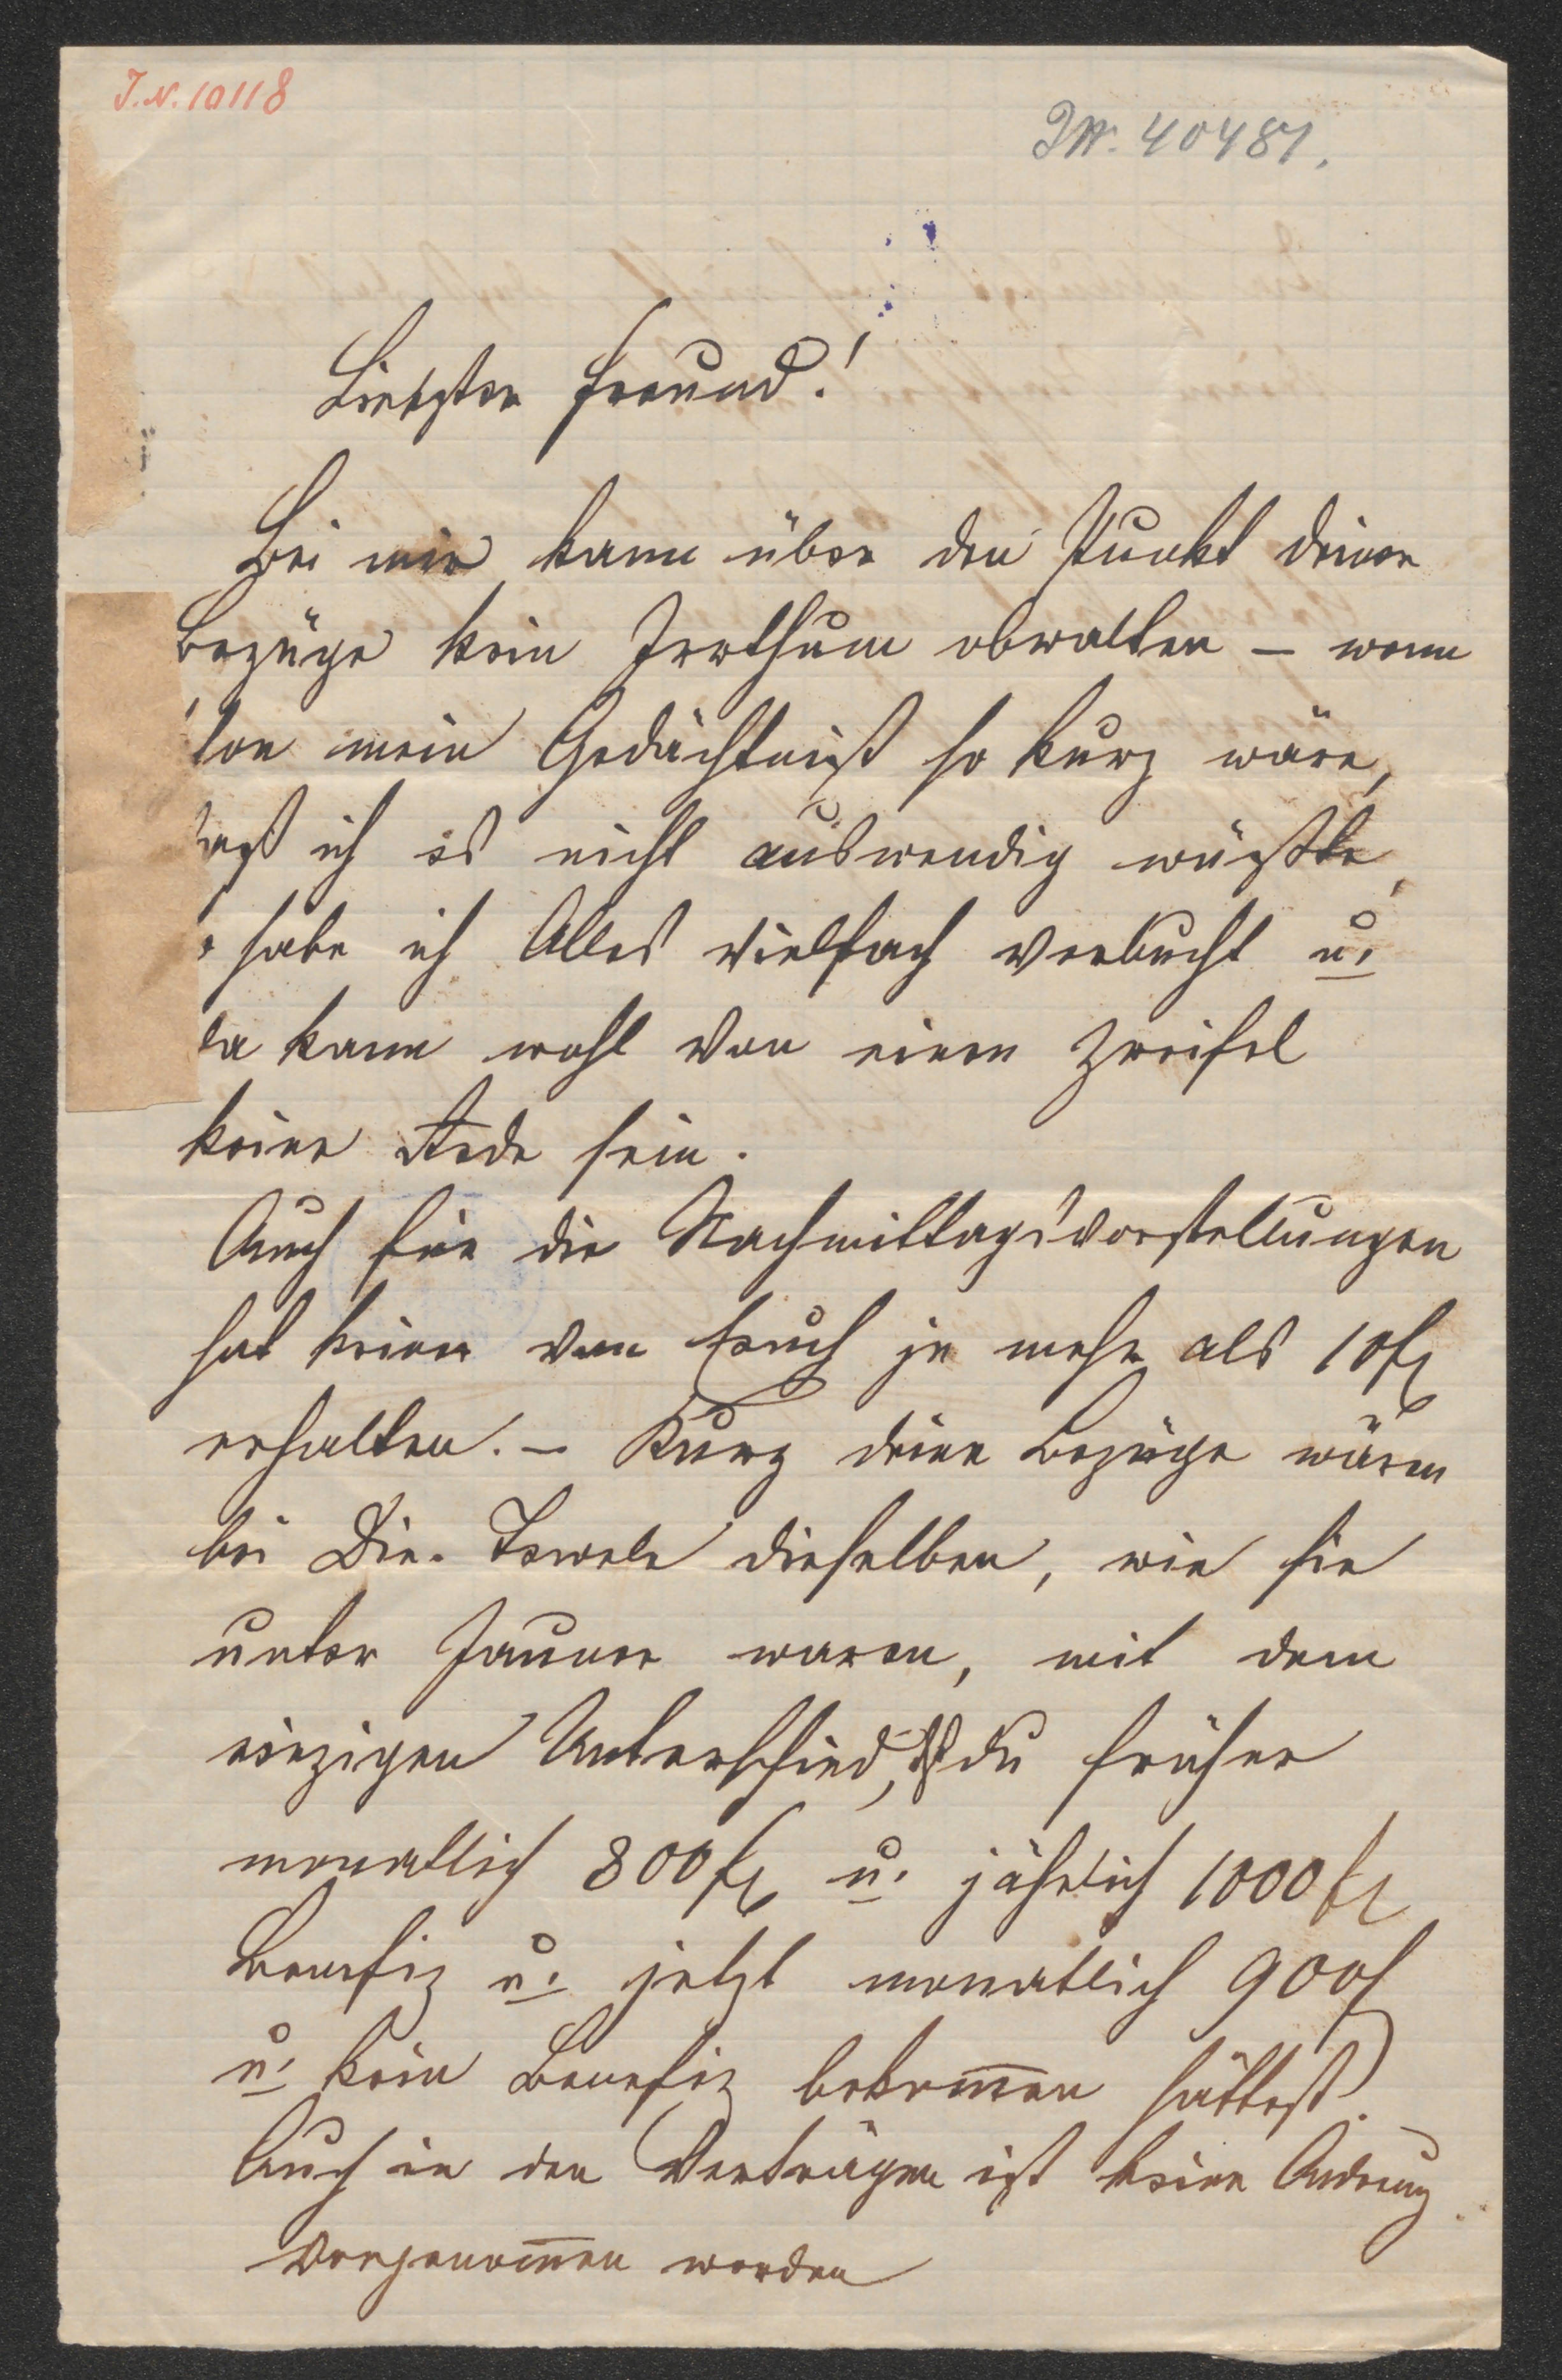 J.N. 10118
JN. 40487.
Liebster Freund!
Bei mir kann über den Punkt deiner
Bezüge kein Irrthum obwalten – wenn
mein Gedächtniß so kurz wäre,
daß ich es nicht auswendig wüßte,
habe ich Alles vielfach verbucht u.
da kann wohl von einem Zweifel
keine Rede sein.
Auch für die Nachmittagsvorstellungen
hat keiner von Euch je mehr als 10 fl
erhalten. – Kurz deine Bezüge wären
bei Dir. Tewele dieselben, wie sie
unter Jauner waren, mit dem
einzigen Unterschied, du früher
monatlich 800 fl u. jährlich 1000 fl
Benefiz u. jetzt monatlich 900 f
u. kein Benefiz bekommen hättest.
Auch in den Verträgen ist keine Andrung
vorgenommen worden